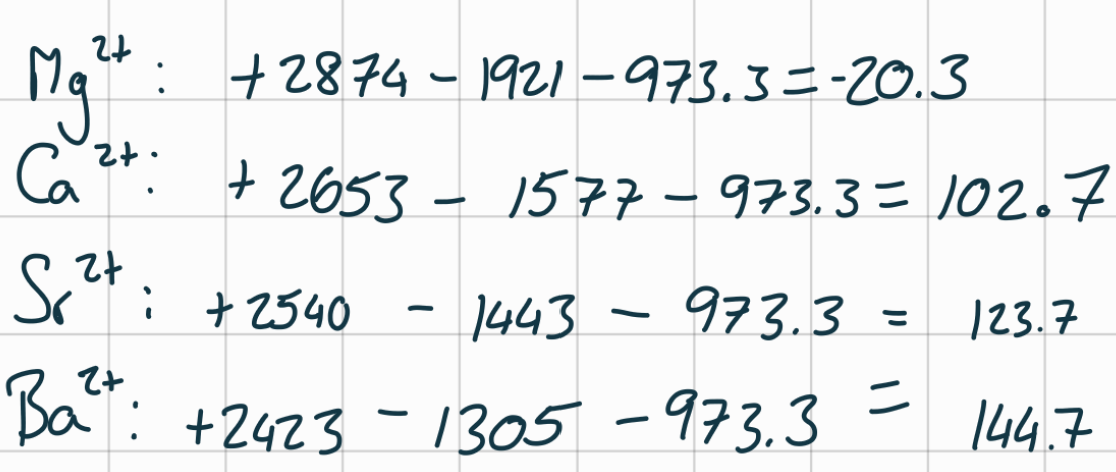 Mg²⁺: +2874 - 1921 - 973.3 = -20.3
Ca²⁺: +2653 - 1577 - 973.3 = 102.7
Sr²⁺: +2540 - 1443 - 973.3 = 123.7
Ba²⁺: +2423 - 1305 - 973.3 = 144.7